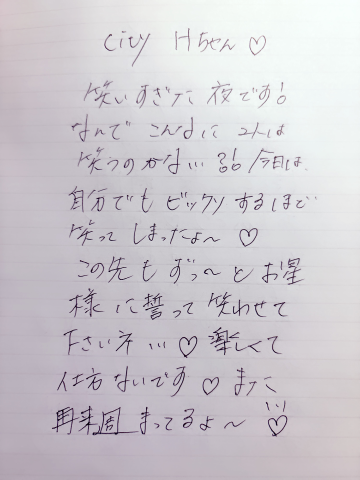 city Hちゃん♡
笑いすぎた夜です!
なんでこんなに2人は
笑うのかない!! 今日は
自分でもビックリするほど
笑ってしまったよ〜♡
この先もずっ〜とお星
様に誓って笑わせて
下さいネ...♡楽しくて
仕方ないです♡また
再来周まってるよ〜♡